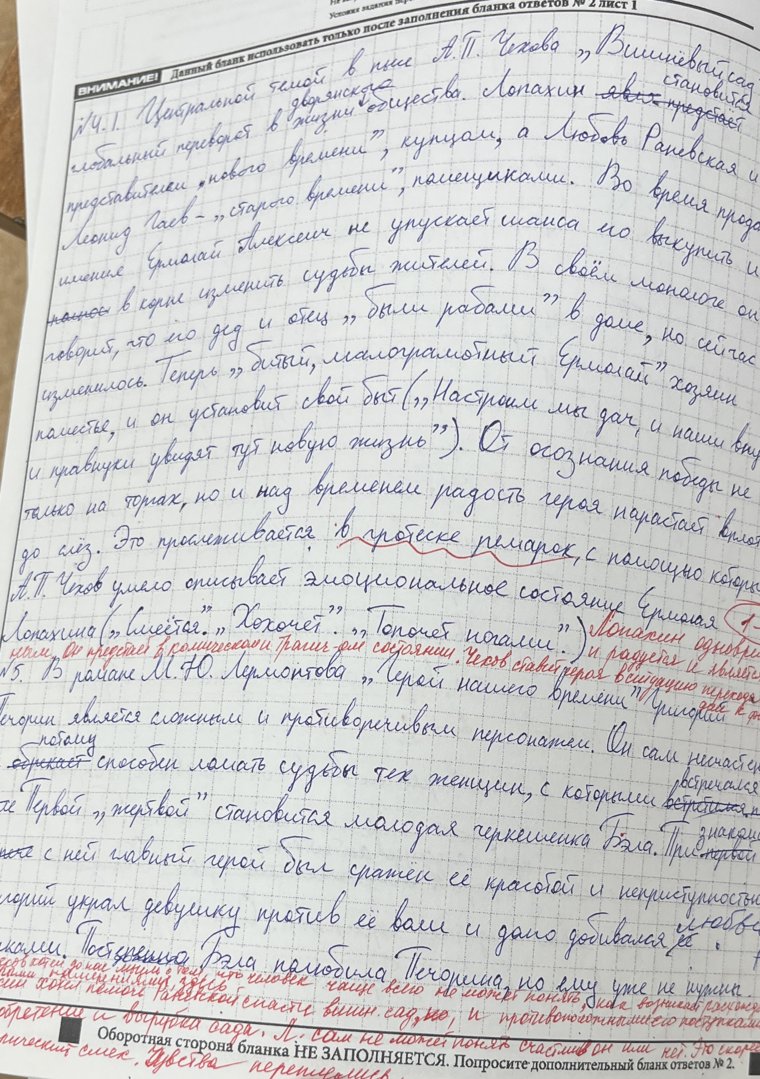 Условия задания пер
Данный бланк использовать только после заполнения бланка ответов № 2 лист 1
ВНИМАНИЕ!
№4.1. Центральной темой в пьесе А.П. Чехова „Вишнёвый сад
становится
глобальный переворот в жизни дворянского общества. Лопахин явл предстаёт
представителем „нового времени”, купцом, а Любовь Раневская и
Леонид Гаев – „старого времени”, помещиками. Во время прода
имение Ермолай Алексеич не упускает шанса его выкупить и
в корне изменить судьбы жителей. В своём монологе он
говорит, что его дед и отец „были рабами” в доме, но сейчас
изменилось. Теперь „битый, малограмотный Ермолай” хозяин
поместье, и он установит свой быт („Настроим мы дач, и наши вну
и правнуки увидят тут новую жизнь”). От осознания победы не
только на торгах, но и над временем радость героя нарастает вплот
до слёз. Это прослеживается в гротеске ремарок, с помощью которы
А.П. Чехов умело описывает эмоциональное состояние Ермолая
Лопахина („Смеётся.” „Хохочет.” „Топочет ногами.”) Лопахин одновр
1-
Он предстаёт в комическом и трагич-ом состоянии. Чехов ставит героя в ситуацию перехода
и радуется и
№5. В романе М.Ю. Лермонтова „Герой нашего времени” Григорий
Печорин является сложным и противоречивым персонажем. Он сам несчастен
потому
способен ломать судьбы тех женщин, с которыми встречался
встретился
Первой „жертвой” становится молодая черкешенка Бэла. При знаком
первой
с ней главный герой был сражён её красотой и неприступность
горий украл девушку против её воли и долго добивался любви
Бэла полюбила Печорина, но ему уже не нужны
что человек чаще всего не может понять, как
Раневской спасти вишн. сад, но и противоположными его поступками
обретение и вырубка сада. Л. сам не может понять счастлив он или нет. Это скорее
Оборотная сторона бланка НЕ ЗАПОЛНЯЕТСЯ. Попросите дополнительный бланк ответов № 2.
рический смех. Чувства переплелись